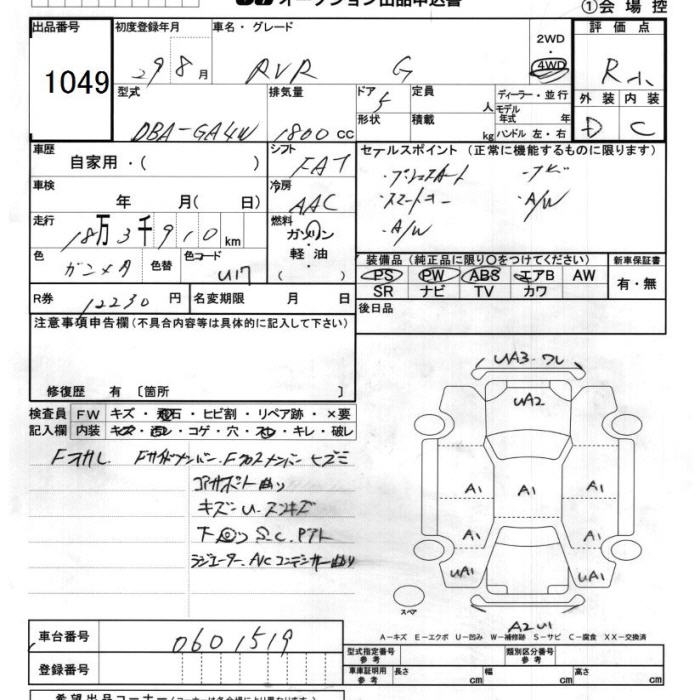 オークション出品申込書
①会場控
出品番号 初度登録年月 車名・グレード 2WD・4WD 評価点
1049 29 8月 RVR G R
型式 排気量 ドア 定員 人 ディーラー・並行 外装 内装
DBA-GA4W 1800 cc 5 形状 積載 kg モデル年式 年 ハンドル 左・右 D C
車歴 自家用・( ) シフト FAT セールスポイント (正常に機能するものに限ります)
・プッシュスタート ・ナビ
車検 年 月( 日) 冷房 AAC ・スマートキー ・A/W
・A/W
走行 18万3千910km 燃料 ガソリン・軽油・
色 ガンメタ 色替 色コード U17
装備品 (純正品に限り○をつけてください) 新車保証書
PS PW ABS エアB AW 有・無
SR ナビ TV カワ
R券 12230円 名変期限 月 日 後日品
注意事項申告欄(不具合内容等は具体的に記入して下さい)
修復歴 有 〔箇所 〕
検査員記入欄 FW キズ・飛石・ヒビ割・リペア跡・×要
内装 キズ・汚レ・コゲ・穴・スレ・キレ・破レ
Fサポート曲り
キズ・U・スリキズ
下回り S.C.
ラジエーター、A/Cコンデンサー曲り
UA3・ワレ
UA2
A1 A1 A1
A1 A1
UA1 UA1
スペア
A2 U1
A－キズ E－エクボ U－凹み W－補修跡 S－サビ C－腐食 XX－交換済
車台番号 0601519
登録番号
型式指定番号 参考 類別区分番号 参考
車庫証明用 参考 長さ cm 幅 cm 高さ cm
希望出品コーナー